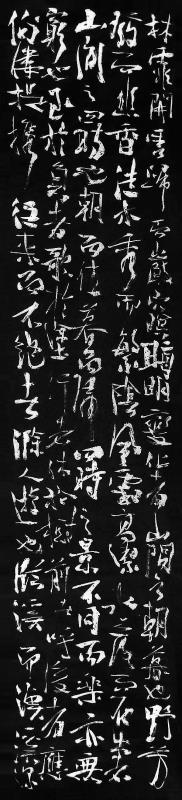 林霏開雲歸而巖穴暝晦明變化者山間之朝暮也野芳
發而幽香佳木秀而繁陰風霜高潔水落而石出者
山間之四時也朝而往暮而歸四時之景不同而樂亦無
窮也至於負者歌於塗行者休於樹前者呼後者應
傴僂提攜往來而不絕者滁人遊也臨溪而漁溪深